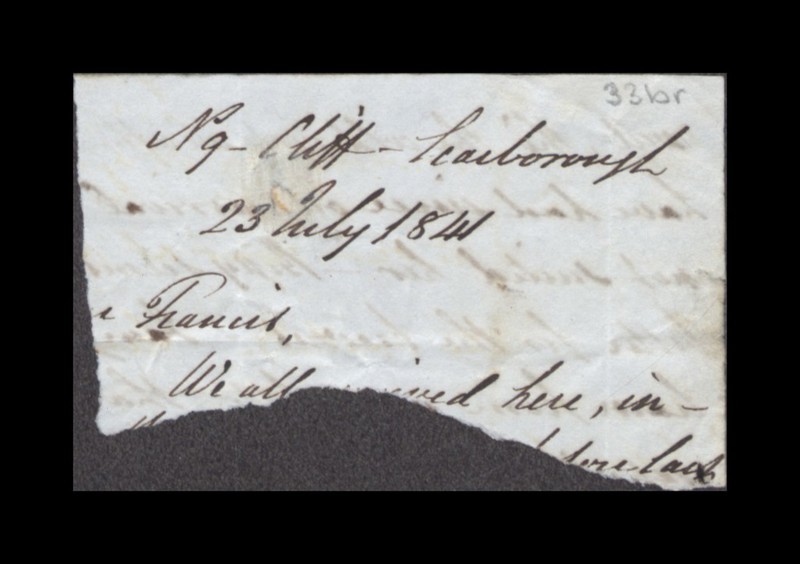 33br
No 9 - Cliff - Scarborough
23 July 1841
Francis,
We all here, in-